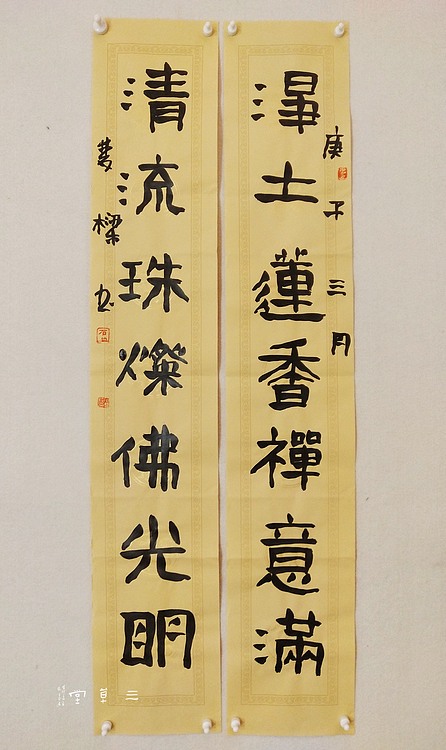 庚子三月
淨土蓮香禪意滿
清流珠燦佛光明
樑书
三草堂